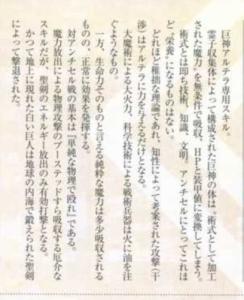 巨神アルテラ専用スキル。
霊子収集体によって構成された巨神の体は「術式として加工
された魔力」を無条件で吸収、HPと装甲値に変換してしまう。
術式とは即ち技術、知識、文明。アンチセルにとってこれほ
ど〝栄養〟になるものはない。
どれほど稚拙な理論であれ、知性によって考案された攻撃(干
渉)はアルテラに力を与えるだけとなる。
大魔術による大火力、科学技術による戦術兵器は火に油を注
ぐようなもの。
一方、生命力そのものと言える純粋な魔力は多少吸収される
ものの、正常に効果を発揮する。
対アンチセル戦の基本は『単純な物理で殴れ』である。
魔力放出による物理攻撃のブーステッドすら吸収する厄介な
スキルだが、聖剣のエネルギー放出のみ有効打撃となる。
かつて地上に現れた白い巨人は地球の内海で鍛えられた聖剣
によって撃退された。